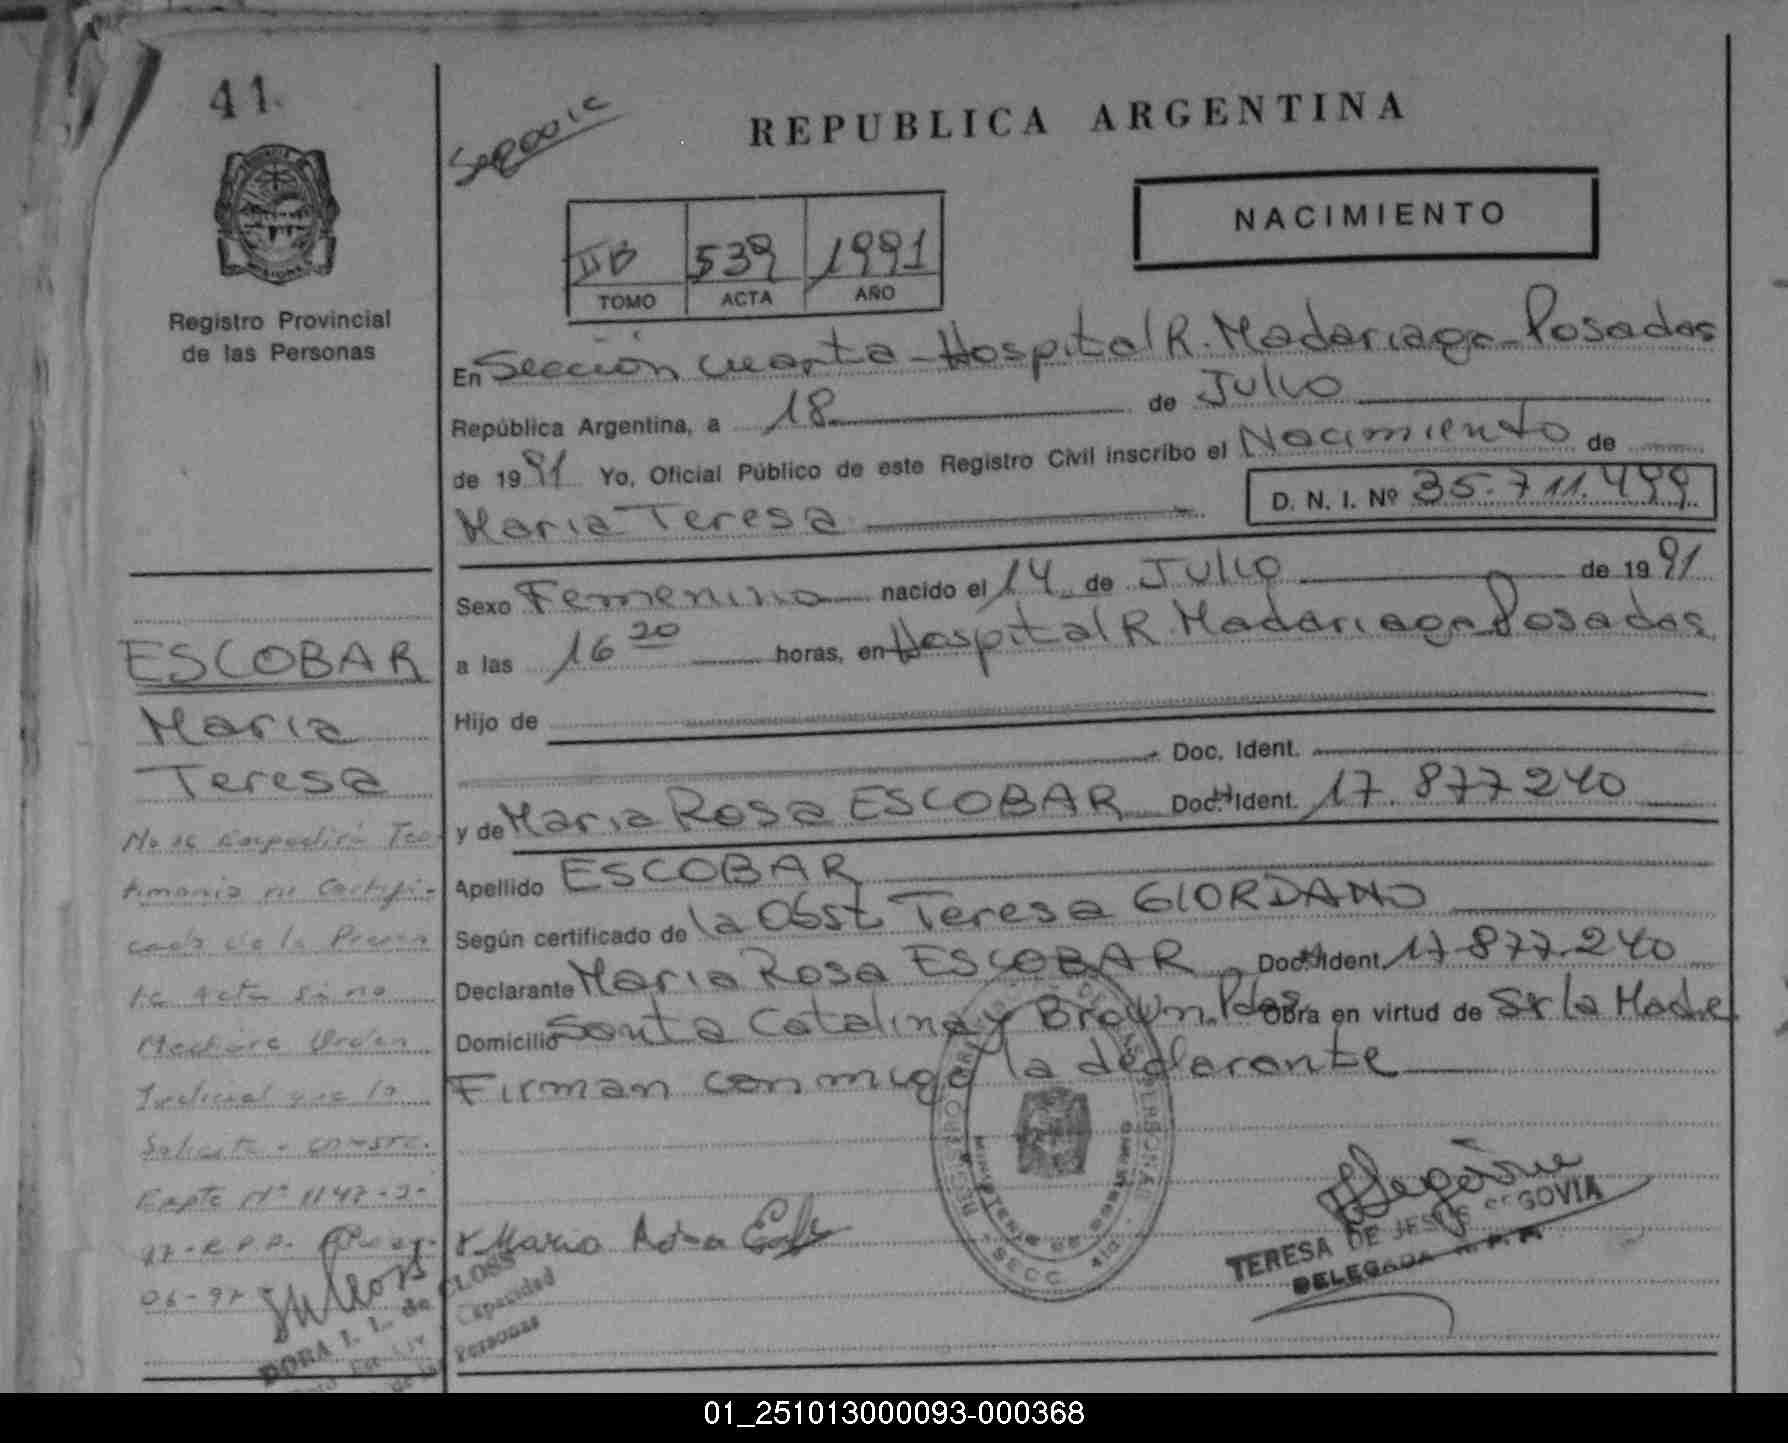 41.
Registro Provincial
de las Personas
ESCOBAR
Maria
Teresa
No se Expedirá Tes
timonio ni Certifi-
cado de la Presen
te Acta si no
Mediare Orden
Judicial que lo
Solicite
Expte Nº 1147-
97-R.P.P.
06-97
DORA I. L. de CLOSS
Capacidad
de las Personas
Segovia
REPUBLICA ARGENTINA
NACIMIENTO
IIB 539 1991
TOMO ACTA AÑO
En Sección cuarta - Hospital R. Madariaga - Posadas
República Argentina, a 18 de Julio
de 1991 Yo, Oficial Público de este Registro Civil inscribo el Nacimiento de
Maria Teresa D. N. I. Nº 35.711.499
Sexo Femenino nacido el 14 de Julio de 1991
a las 16 20 horas, en Hospital R. Madariaga Posadas
Hijo de
Doc. Ident.
y de Maria Rosa ESCOBAR Doc. Ident. 17.877.240
Apellido ESCOBAR
Según certificado de la Obst Teresa GIORDANO
Declarante Maria Rosa ESCOBAR Doc. Ident. 17.877.240
Domicilio Santa Catalina y Brown. Pdas Obra en virtud de Sr la Madre
Firman conmigo la declarante
MINISTERIO DE GOBIERNO
SECC. 4ta
TERESA DE JESUS SEGOVIA
DELEGADA R. P. P.
01_251013000093-000368